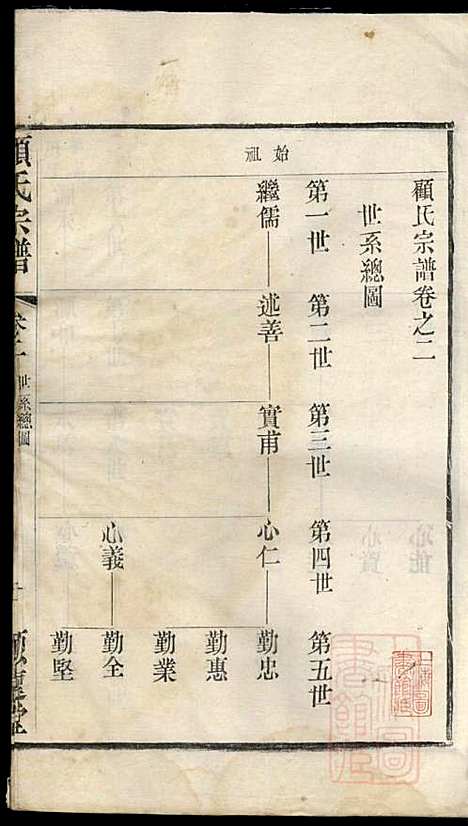 顧氏宗譜卷之二
世系總圖
第一世
第二世
第三世
第四世
第五世
始祖
繼儒
述善
實甫
心仁
勤忠
勤惠
勤業
心義
勤全
勤堅
顧氏宗譜
卷之二
世系總圖